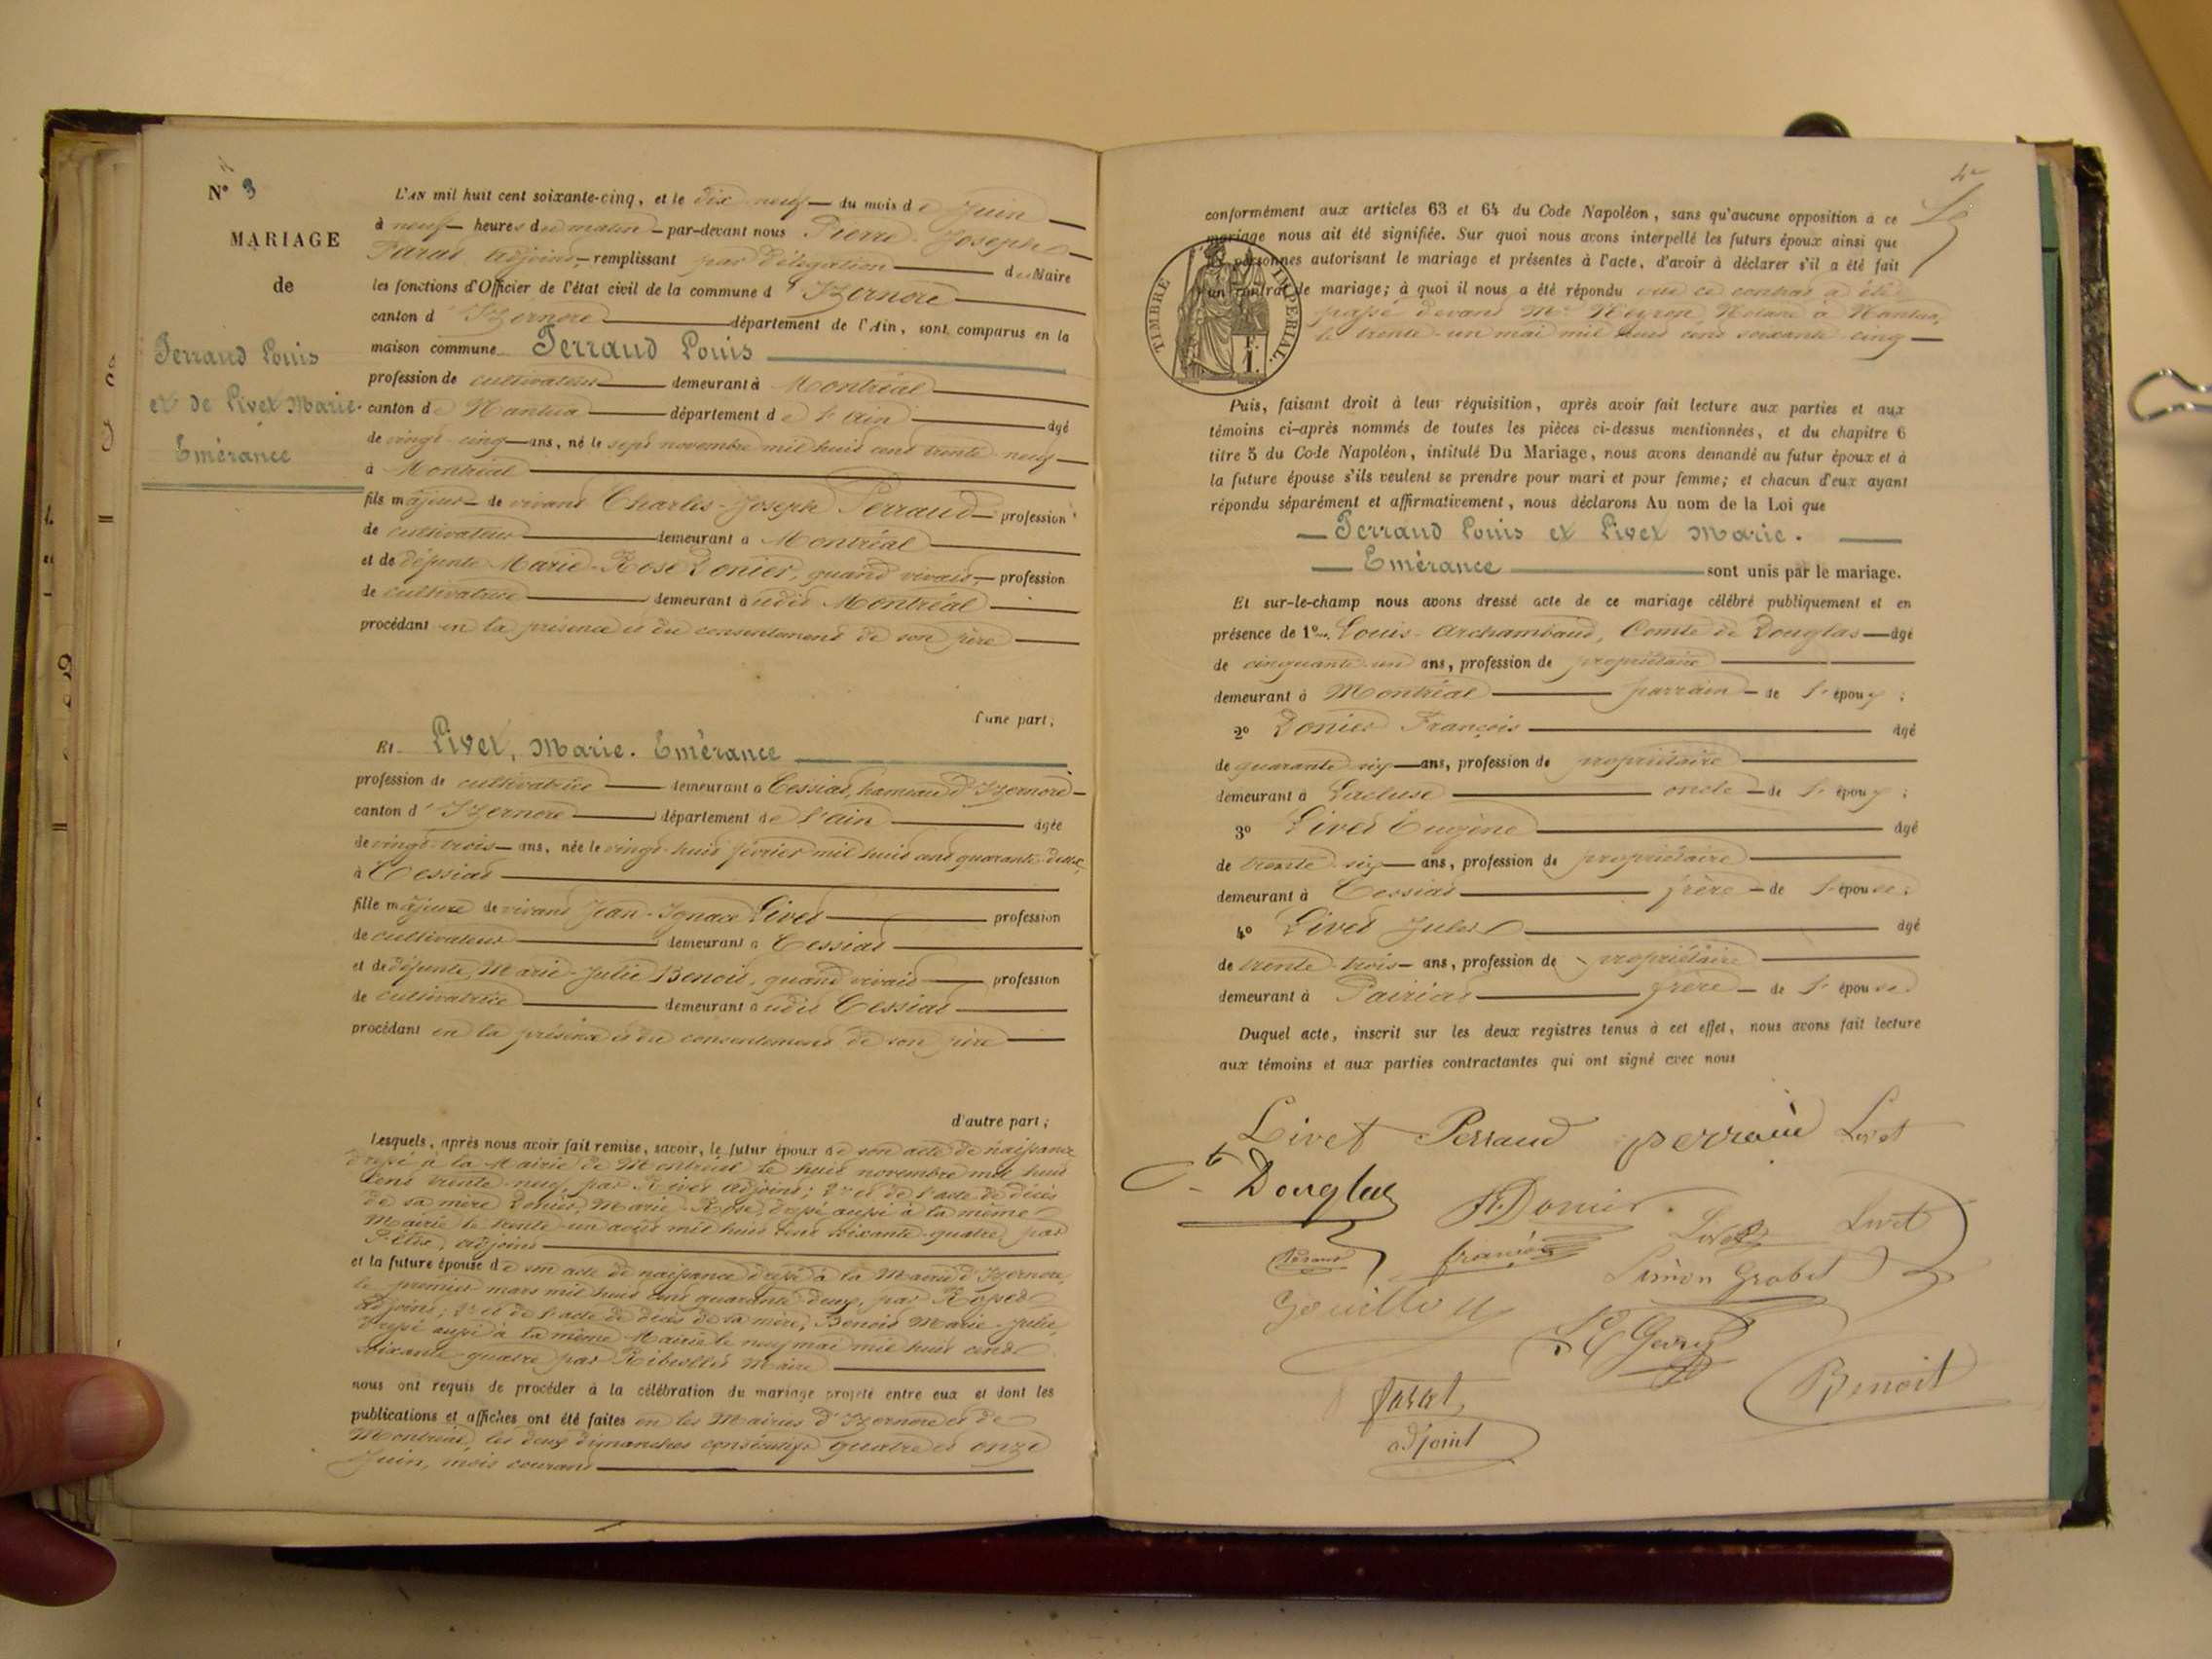 N° 3
MARIAGE
de
Perraud Louis
et de Livet Marie-
Emérance
L'AN mil huit cent soixante-cinq, et le dix neuf du mois de Juin
à neuf heures du matin par-devant nous Pierre Joseph
adjoint, remplissant par délégation du Maire
les fonctions d'Officier de l'état civil de la commune d'Izernore
canton d'Izernore département de l'Ain, sont comparus en la
maison commune Perraud Louis
profession de cultivateur demeurant à Montréal
canton de Nantua département de l'Ain âgé
de vingt-cinq ans, né le sept novembre mil huit cent trente-neuf
à Montréal
fils majeur de vivant Charles-Joseph Perraud profession
de cultivateur demeurant à Montréal
et de défunte Marie-Rose Donier, quand vivait, profession
de cultivatrice demeurant à udit Montréal
procédant en la présence et du consentement de son père
d'une part;
Et Livet, Marie-Emérance
profession de cultivatrice demeurant à Cessiat, hameau d'Izernore
canton d'Izernore département de l'ain âgée
de vingt-trois ans, née le vingt-huit février mil huit cent quarante-deux,
à Cessiat
fille majeure de vivant Jean-Ignace Livet profession
de cultivateur demeurant à Cessiat
et de défunte, Marie-Julie Benoit, quand vivait profession
de cultivatrice demeurant à udit Cessiat
procédant en la présence et du consentement de son père
d'autre part;
Lesquels, après nous avoir fait remise, savoir, le futur époux de son acte de naissance
dressé à la Mairie de Montréal le huit novembre mil huit
cent trente-neuf, par adjoint; 2° et de l'acte de décès
de sa mère Donier, Marie-Rose, dressé aussi à la même
Mairie le trente-un août mil huit cent soixante-quatre par
adjoint
et la future épouse de son acte de naissance dressé à la Mairie d'Izernore,
le premier mars mil huit cent quarante-deux, par
adjoint; 2° et de l'acte de décès de sa mère, Benoit Marie-Julie,
dressé aussi à la même Mairie le neuf mai mil huit cent
soixante-quatre par Maire
nous ont requis de procéder à la célébration du mariage projeté entre eux et dont les
publications et affiches ont été faites en les Mairies d'Izernore et de
Montréal, les deux dimanches consécutifs quatre et onze
Juin, mois courant
conformément aux articles 63 et 64 du Code Napoléon, sans qu'aucune opposition à ce
mariage nous ait été signifiée. Sur quoi nous avons interpellé les futurs époux ainsi que
les personnes autorisant le mariage et présentes à l'acte, d'avoir à déclarer s'il a été fait
un contrat de mariage; à quoi il nous a été répondu que ce contrat a été
passé devant Me Notaire à Nantua,
le trente-un mai mil huit cent soixante-cinq
TIMBRE IMPÉRIAL
F.
1.
Puis, faisant droit à leur réquisition, après avoir fait lecture aux parties et aux
témoins ci-après nommés de toutes les pièces ci-dessus mentionnées, et du chapitre 6
titre 5 du Code Napoléon, intitulé Du Mariage, nous avons demandé au futur époux et à
la future épouse s'ils veulent se prendre pour mari et pour femme; et chacun d'eux ayant
répondu séparément et affirmativement, nous déclarons Au nom de la Loi que
Perraud Louis et Livet Marie-
Emérance sont unis par le mariage.
Et sur-le-champ nous avons dressé acte de ce mariage célébré publiquement et en
présence de 1° Louis-Archambaud, Comte de Douglas âgé
de cinquante-un ans, profession de propriétaire
demeurant à Montréal parrain de l'époux;
2° Donier François âgé
de quarante-six ans, profession de propriétaire
demeurant à Lacluse oncle de l'époux;
3° Livet Eugène âgé
de trente-six ans, profession de propriétaire
demeurant à Cessiat frère de l'épouse;
4° Livet Jules âgé
de trente-trois ans, profession de propriétaire
demeurant à Pairiat frère de l'épouse
Duquel acte, inscrit sur les deux registres tenus à cet effet, nous avons fait lecture
aux témoins et aux parties contractantes qui ont signé avec nous
Livet Perraud perraud Livet
Cte Douglas
Donier Livet Livet
françois
Simon Grobet
Gouillou
Benoit
adjoint